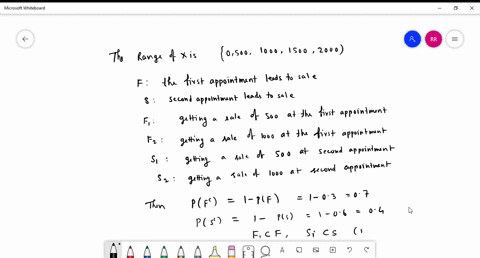 Microsoft Whiteboard
RR
The Range of X is {0,500, 1000, 1500, 2000}
F: the first appointment leads to sale
S: second appointment leads to sale
F₁: getting a sale of 500 at the first appointment
F₂: getting a sale of 1000 at the first appointment
S₁: getting a sale of 500 at second appointment
S₂: getting a sale of 1000 at second appointment
Then P(Fᶜ) = 1-P(F) = 1-0.3 = 0.7
P(Sᶜ) = 1- P(S) = 1-0.6 = 0.4
F₁ ⊂ F, Sᵢ ⊂ S (